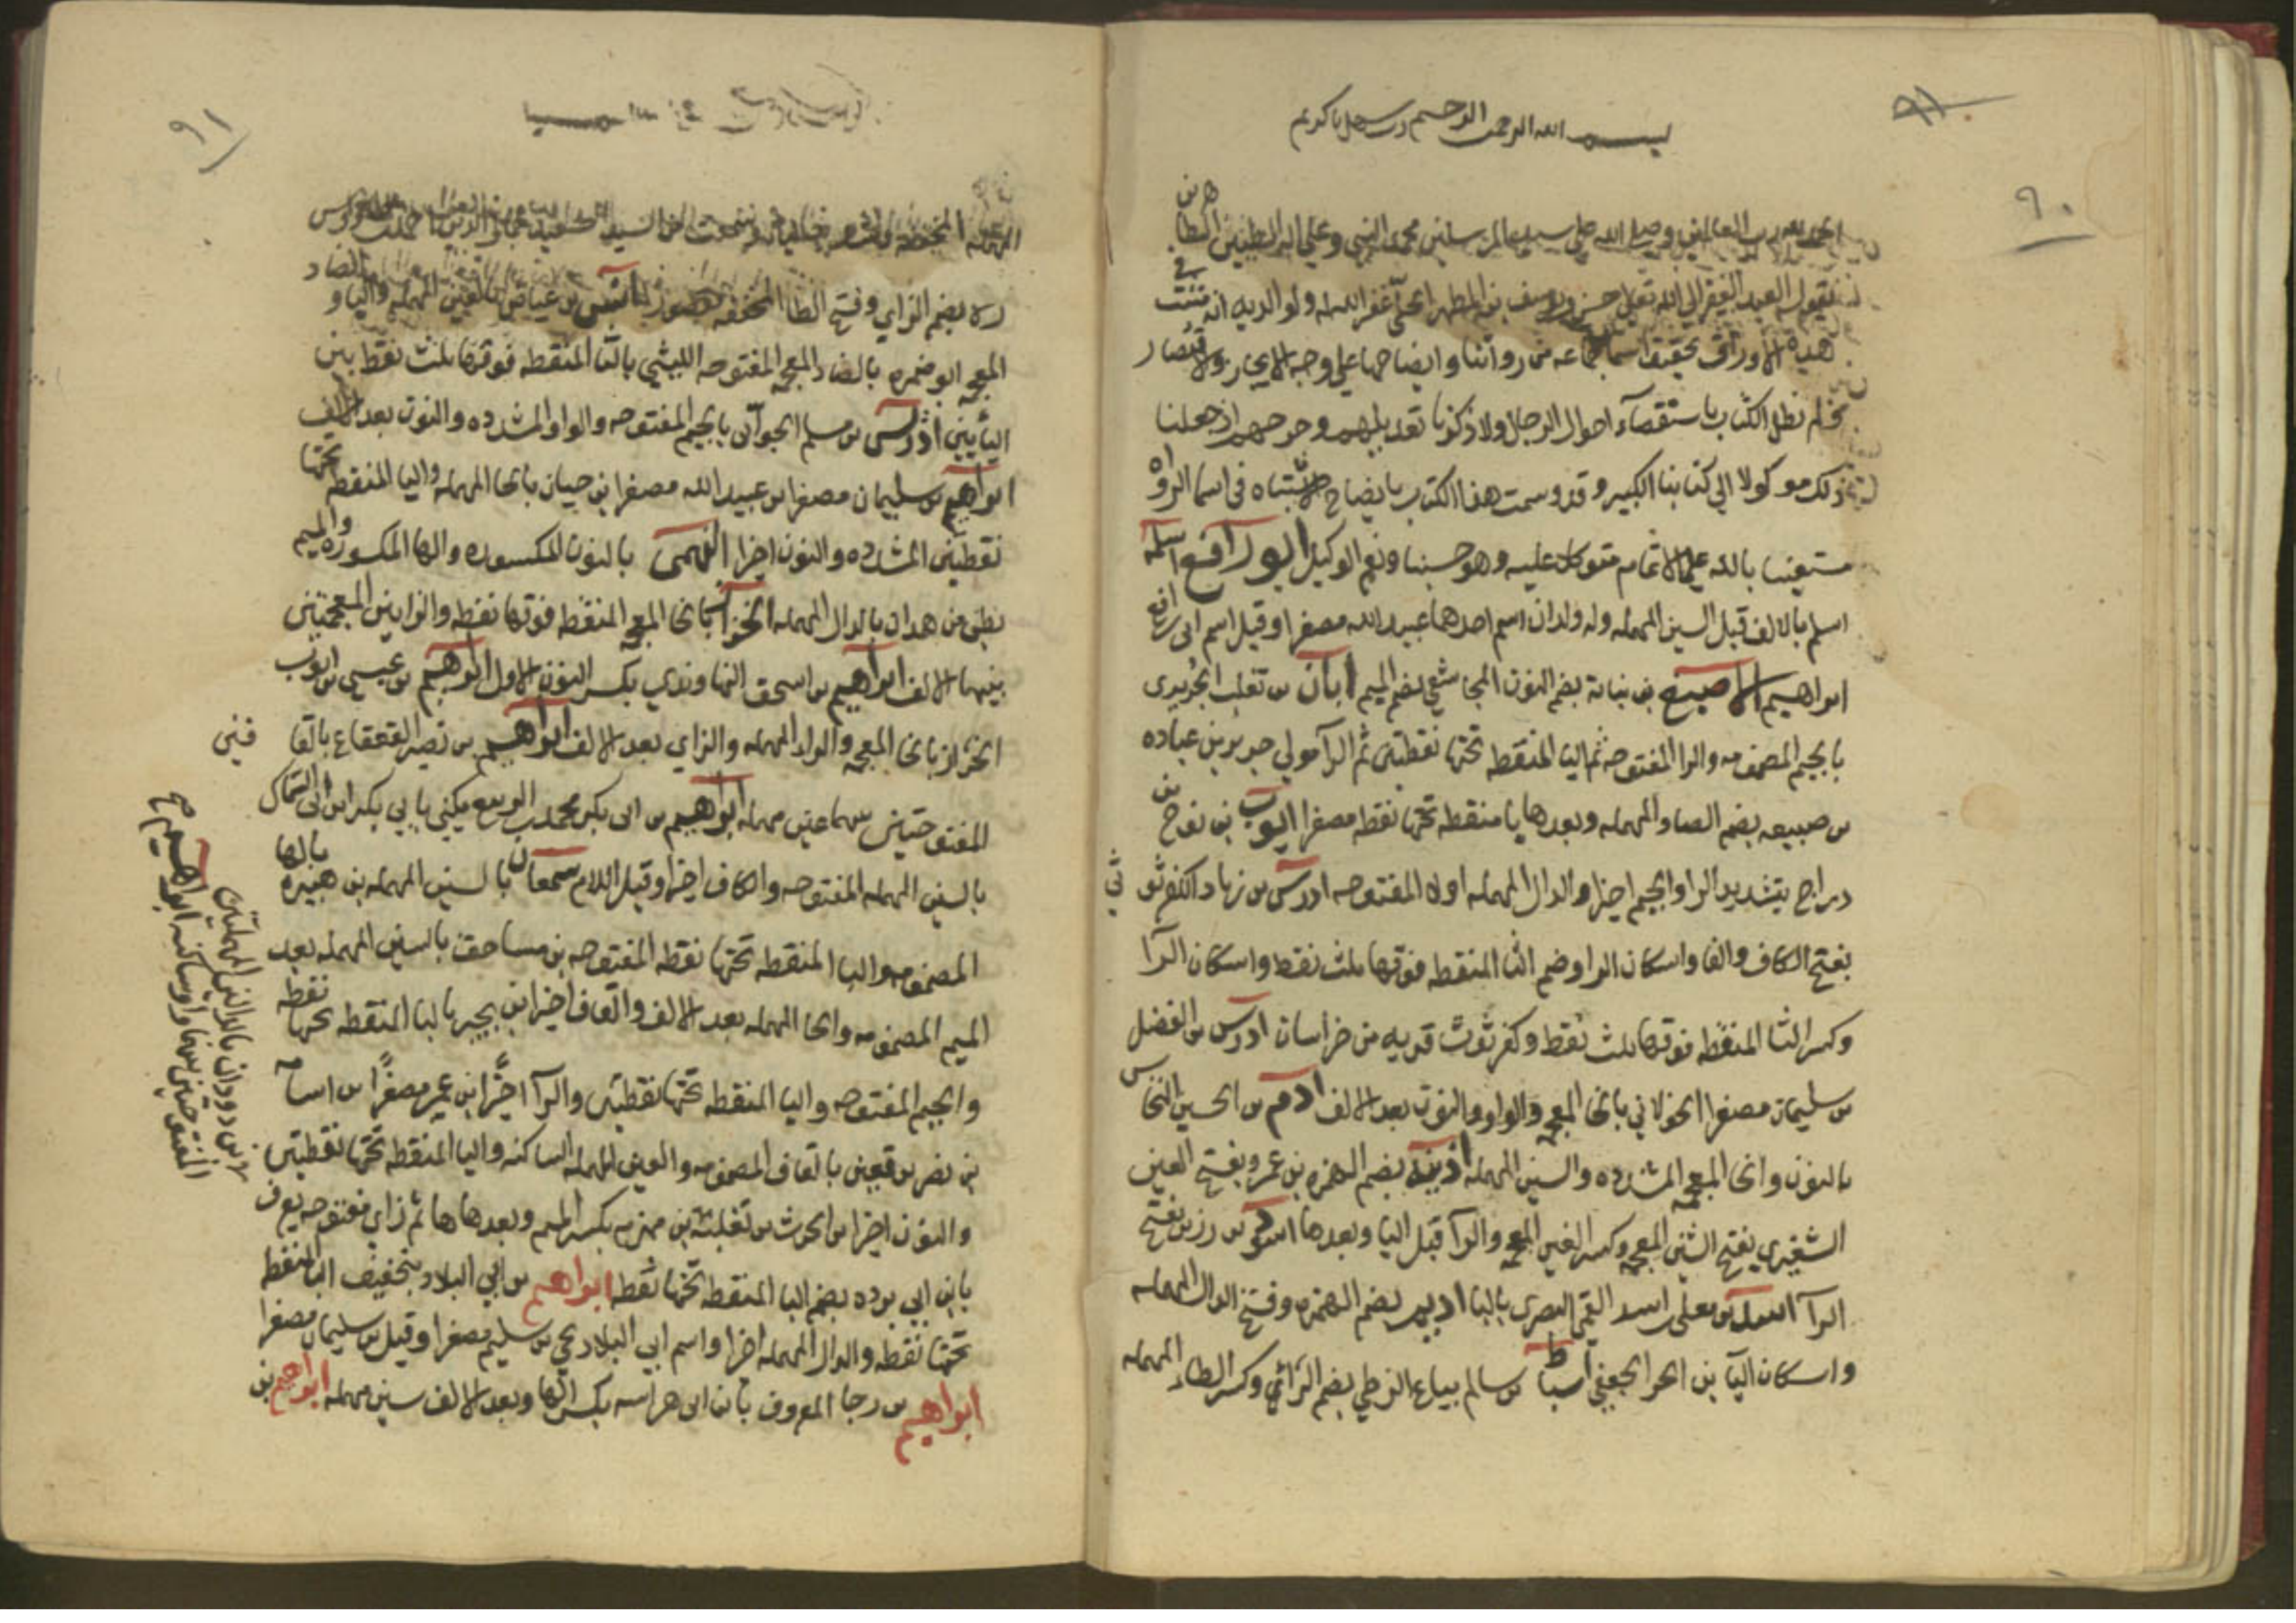 ٩١
٩٠
بسم الله الرحمن الرحيم رب سهل يا كريم
هرين
الحمد لله رب العالمين وصلى الله على سيد المرسلين محمد النبي وعلى اله الطيبين الطا
فيقول العبد الفقير الى الله تعالى حسن بن يوسف بن المطهر الحلي غفر الله له ولوالديه انه ثبتت في
هذه الاوراق تحقيق اسما جماعه من رواتنا وايضاحها على وجه الايجاز والاقتصار
فلم نطل الكتاب باستقصآء احوال الرجال ولا ذكرنا تعديلهم وجرحهم اذ جعلنا
ذلك موكولا الى كتابنا الكبير وقد وسمت هذا الكتاب بايضاح الاشتباه فى اسما الرواه
مستعينا بالله على الاتمام متوكلا عليه وهو حسبنا ونعم الوكيل ابو رافع اسلم
اسلم بالالف قبل السين المهمله وله ولدان اسم احدهما عبيد الله مصغرا وقيل اسم ابى رافع
ابراهيم الاصبغ بن نباتة بضم النون المجاشعي بضم الميم ابان بن تغلب الجريرى
بالجيم المضمومه والرا المفتوحه ثم اليا المنقطه تحتها نقطتين ثم الرآ مولى جرير بن عباده
بن ضبيعه بضم الصاد المهمله وبعدها يا منقطه تحتها نقطه مصغرا ايوب بن نوح بن
دراج بتشديد الرا والجيم اخيرا والدال المهمله اولا المفتوحه ادريس بن زياد الكفرثو ثي
بفتح الكاف والفا واسكان الرا وضم الثا المنقطه فوقها ثلث نقط واسكان الرآ
وكسر الثا المنقطه فوقها ثلث نقط وكفرثوث قريه من خراسان ادريس بن الفضل
بن سليمان مصغرا الخولاني بالخا المعجمه والواو والنون بعد الالف ادم بن الحسين النخاس
بالنون والخا المعجمه المشدده والسين المهمله اذينه بضم الهمزه بن عمر وبفتح العين
الشغيري بفتح الشين المعجمه وكسر الغين المعجمه والرآ قبل اليا وبعدها اسود بن رزين بفتح
الرآ اسد بن معلى بن اسد القمى البصرى بالبا اديم بضم الهمزه وفتح الدال المهمله
واسكان اليآ بن الحر الجعفي اسباط بن سالم بياع الزطي بضم الزآي وكسر الطاء المهمله
٩١
المهمله المخففه
ره بضم الزاي وفتح الطا المخففه مقصورا انس بن عياض بالعين المهمله واليا والضاد
المعجمه ابو ضمره بالضاد المعجمه المفتوحه الليثي بالثا المنقطه فوقها ثلث نقط بين
اليأيين ادريس بن مسلم الجوآنى بالجيم المفتوحه والواو المشدده والنون بعد الالف
ابراهيم بن سليمان مصغرا بن عبيد الله مصغرا بن حيان بالحا المهمله واليا المنقطه تحتها
نقطتين المشدده والنون اخيرا النهمى بالنون المكسوره والها المكسوره والميم
بطن من همدان بالدال المهمله الخزاز بالخا المعجمه المنقطه فوقها نقطه والزايين المعجمتين
بينهما الالف ابراهيم بن اسحق النهاوندي بكسر النون الاول ابراهيم بن عيسى بن ايوب
الخزاز بالخا المعجمه والراد المهمله والزاي بعد الالف ابراهيم بن نصر القعقاع بالقا فين
المفتوحتين بينهما عين مهمله ابراهيم بن ابى بكر محمد بن الربيع يكنى بابي بكر ابن ابى السماك
بالسين المهمله المفتوحه والكاف اخيرا وقيل اللام سمعان بالسين المهمله بن هبيره بالها
المضمومه والبا المنقطه تحتها نقطه المفتوحه بن مساحق بالسين المهمله بعد
الميم المضمومه والحا المهمله بعد الالف والقاف اخيرا بن بجير بالبا المنقطه تحتها نقطه
والجيم المفتوحه واليا المنقطه تحتها نقطتين والرآ اخيرًا بن عمير مصغرًا بن اسامه
بن نصر بن قعين بالقاف المضمومه والعين المهمله الساكنه واليا المنقطه تحتها نقطتين
والنون اخيرا بن الحرث بن ثعلبه بن مهزم بكسر الميم وبعدها ها ثم زاي مفتوحه يعرف
بابن ابي برده بضم البا المنقطه تحتها نقطه ابراهيم بن ابي البلاد بتخفيف البا المنقطه
تحتها نقطه والدال المهمله اخرا واسم ابي البلاد يحي بن سليم مصغرا وقيل بن سليمان مصغرا
ابراهيم بن رجا المعروف بابن ابى هراسه بكسر الها وبعد الالف سين مهمله ابراهيم بن
بن دودان بالدالين المهملتين
المفتوحتين بينهما واو ساكنه ابراهيم صح